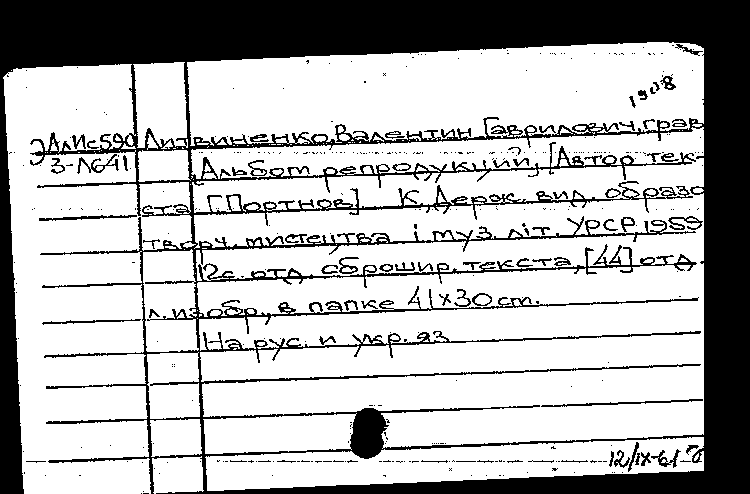 1908
ЭАлИс590 Литвиненко, Валентин Гаврилович, грав
3-Л641 Альбом репродукций, [Автор тек-
ста Г. Портнов] К, Держ. вид. образо
творч. мистецтва і муз. літ. УРСР, 1959
12с. отд. сброшир. текста, [44] отд.
л. изобр., в папке 41×30 cm.
На рус. и укр. яз
12/IX-61